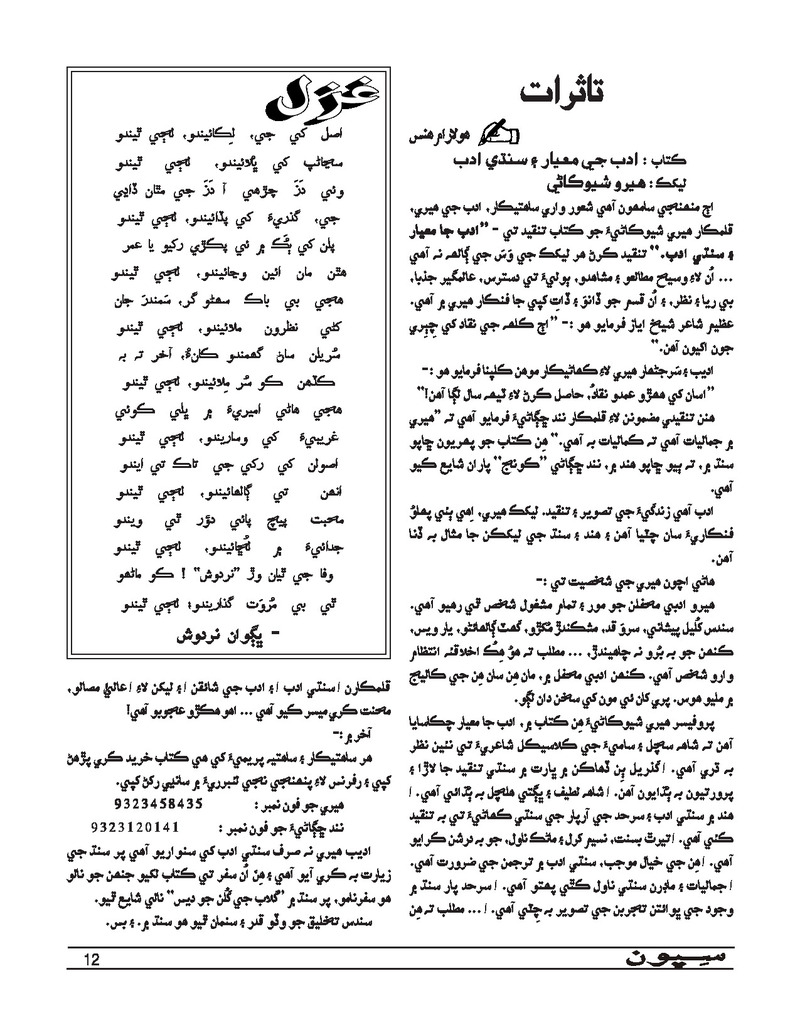 تاثرات
هولارام هنس
ڪتاب : ادب جي معيار ۽ سنڌي ادب
ليکڪ : هيرو شيوڪاڻي
اڄ منهنجي سامهون آهي شعور واري ساهتيڪار، ادب جي هيري،
قلمڪار هيري شيوڪاڻيءَ جو ڪتاب تنقيد تي - ”ادب جا معيار
۽ سنڌي ادب.“ تنقيد ڪرڻ هر ليکڪ جي وَسَ جي ڳالهه نہ آهي
... اُن لاءِ وسيع مطالعو ۽ مشاهدو، ٻوليءَ تي دسترس، عالمگير جذبا،
بي ريا ۽ نظر، ۽ اُن قسم جو ڏانوَ ۽ ڏاتِ کپي جا فنڪار هيري ۾ آهي.
عظيم شاعر شيخ اياز فرمايو هو :- ”اڄ ڪلهه جي نقاد کي چِٻري
جون اکيون آهن.“
اديب ۽ سَرجڻهار هيري لاءِ ڪهاڻيڪار موهن ڪلپنا فرمايو هو :-
”اسان کي هھڙو عمدو نقادُ، حاصل ڪرڻ لاءِ ٽيهه سال لڳا آهن!“
هنن تنقيدي مضمونن لاءِ قلمڪار نند ڇڳاڻيءَ فرمايو آهي تہ ”هيري
۾ جماليات آهي تہ ڪماليات بہ آهي.“ هِن ڪتاب جو پهريون ڇاپو
سنڌ ۾، تہ ٻيو ڇاپو هند ۾، نند ڇڳاڻي ”ڪونج“ پاران شايع ڪيو
آهي.
ادب آهي زندگيءَ جي تصوير ۽ تنقيد. ليکڪ هيري، اِهي ٻئي پهلوُ
فنڪاريءَ سان چٽيا آهن ۽ هند ۽ سنڌ جي ليکڪن جا مثال بہ ڏنا
آهن.
هاڻي اچون هيري جي شخصيت تي :-
هيرو ادبي محفلن جو مور ۽ تمام مشغول شخص ٿي رهيو آهي.
سندس کُليل پيشاني، سروَ قد، مشڪندڙ مُکڙو، گهٽ ڳالهائڻو، يار ويس،
ڪنهن جو بہ بُرو نہ چاهيندڙ، ... مطلب تہ هوُ هِڪُ اخلاقنہ انتظام
وارو شخص آهي. ڪنهن ادبي محفل ۾، مان هِن سان هِن جي ڪاليج
۾ مليو هوس. پري کان ئي مون کي سخن دان لڳو.
پروفيسر هيري شيوڪاڻيءَ هِن ڪتاب ۾، ادب جا معيار چڪاسايا
آهن تہ شاهه سچل ۽ ساميءَ جي ڪلاسيڪل شاعريءَ تي نئين نظر
بہ ڌري آهي. ا گذريل ٻن ڏهاڪن ۾ ڀارت ۾ سنڌي تنقيد جا لاڙا ۽
پرورتيون بہ ٻڌايون آهن. ا شاهه لطيف ۽ ڀڳتي هلچل بہ ٻڌائي آهي. ا
هند ۾ سنڌي ادب ۽ سرحد جي آرپار جي سنڌي ڪهاڻيءَ تي بہ تنقيد
ڪئي آهي. ا تيرٿ بسنت، نسيم کرل ۽ ماڻڪ ناول، جو بہ درشن ڪرايو
آهي. ا هِن جي خيال موجب، سنڌي ادب ۾ ترجمن جي ضرورت آهي.
ا جماليات ۽ ماڊرن سنڌي ناول ڪٿي پهتو آهي. ا سرحد پار سنڌ ۾
وجود جي ڀوائتن تجربن جي تصوير بہ چِٽي آهي. ا ... مطلب تہ هِن
غزل
اصل کي جي، لِڪائيندو، ٿڃي ٿيندو
سڃاڻپ کي ڀُلائيندو، ٿڃي ٿيندو
وئي دَزَ چڙهي آ دَزَ جي مٿان ڏاڍي
جي، گذريءَ کي پڏائيندو، ٿڃي ٿيندو
پلن کي ٻَڪَ ۾ ئي پڪڙي رکيو يا عمر
هٿن مان ائين وڃائيندو، ٿڃي ٿيندو
هجي بي باڪ سھڻو گر، سَمندرَ جان
کڻي نظرون ملائيندو، ٿڃي ٿيندو
سُريلن ساڻ گهمندو کان۽ُ، آخر تہ بہ
ڪڏهن ڪو سُر مِلائيندو، ٿڃي ٿيندو
هجي هاڻي اميريءَ ۾ ڀلي ڪوئي
غريبيءَ کي وساريندو، ٿڃي ٿيندو
اصولن کي رکي جي تاڪ تي ايندو
انهن تي ڳالهائيندو، ٿڃي ٿيندو
محبت پيچ پائي دوُر ٿي ويندو
جدائيءَ ۾ لُڇائيندو، ٿڃي ٿيندو
وفا جي ٿيان وڙ ”نردوش“ ! ڪو ماڻهو
ٿي بي مُرَوَت گذاريندو؛ ٿڃي ٿيندو
- ڀڳوان نردوش
قلمڪارن ا سنڌي ادب ا ۽ ادب جي شائقن ا ۽ ليکن لاءِ ا عاليٰ مصالو،
محنت ڪري ميسر ڪيو آهي ... اهو هڪڙو عجوبو آهي!
آخر ۾ :-
هر ساهتيڪار ۽ ساهتيہ پريميءَ کي هي ڪتاب خريد ڪري پڙهڻ
کپي ۽ رفرنس لاءِ پنهنجي نجي لئبرريءَ ۾ سانڍي رکڻ کپي.
هيري جو فون نمبر : 9323458435
نند ڇڳاڻيءَ جو فون نمبر : 9323120141
اديب هيري نہ صرف سنڌي ادب کي سنواريو آهي پر سنڌ جي
زيارت بہ ڪري آيو آهي ۽ هِن اُن سفر تي ڪتاب لکيو جنهن جو نالو
هو سفرنامو، پر سنڌ ۾ ’گلاب جي گُلن جو ديس“ نالي شايع ٿيو.
سندس تخليق جو وڏو قدر ۽ سنمان ٿيو هو سنڌ ۾. ۽ بس.
12
سِپون